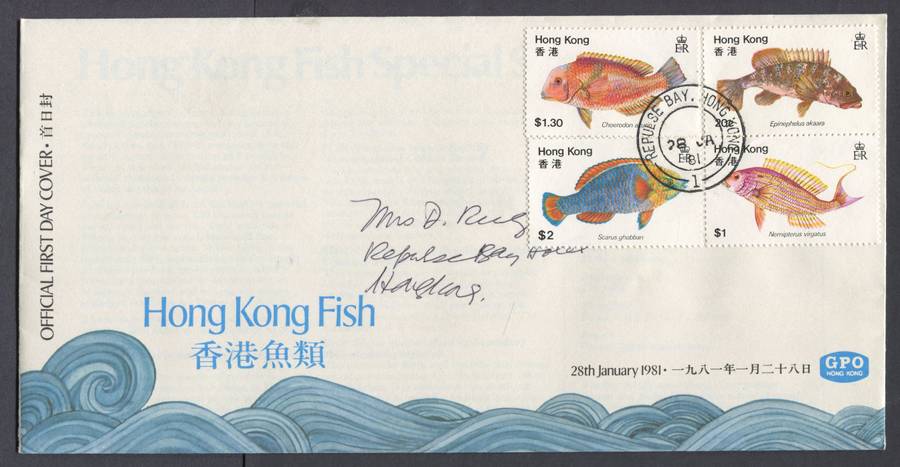 OFFICIAL FIRST DAY COVER · 首日封
Hong Kong
香港
$1.30
Choerodon
Hong Kong
香港
20¢
Epinephelus akaara
Hong Kong
香港
$2
Scarus ghobban
Hong Kong
香港
$1
Nemipterus virgatus
REPULSE BAY, HONG KONG
28 JA
81
1
Mrs D.
Repulse Bay Hotel
Hongkong.
Hong Kong Fish
香港魚類
28th January 1981 · 一九八一年一月二十八日
GPO
HONG KONG